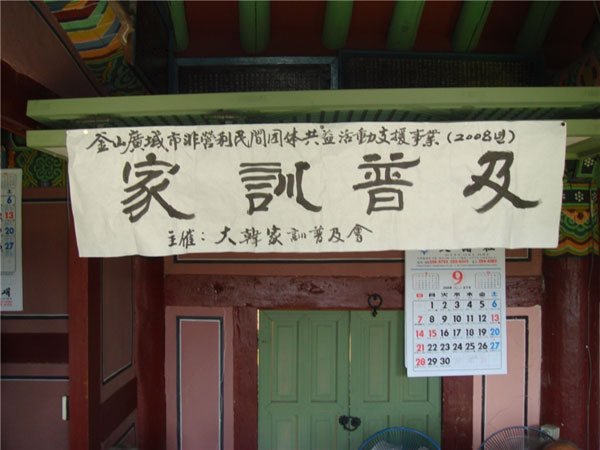 釜山廣域市非營利民間団体共益活動支援事業(2008년)
家訓普及
主催: 大韓家訓普及會
9
日 月 火 水 木 金 土
1 2 3 4 5 6
7 8 9 10 11 12 13
14 15 16 17 18 19 20
21 22 23 24 25 26 27
28 29 30
6
13
20
27